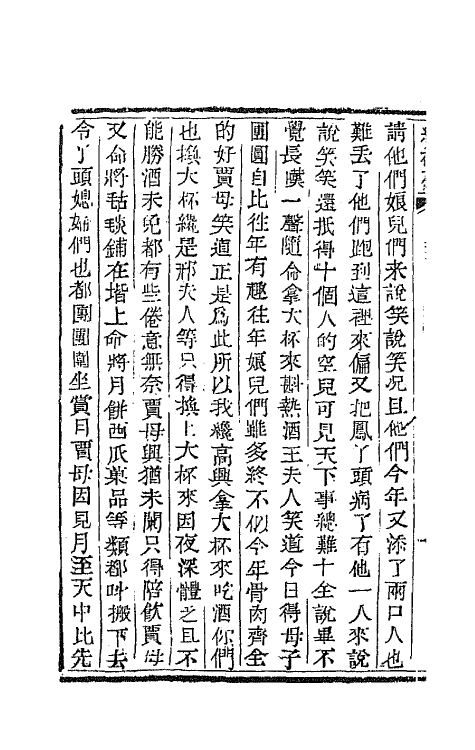 請他們娘兒們來說笑說笑况且他們今年又添了兩口人也
難丢了他們跑到這裡來偏又把鳳丫頭病了有他一人來說
說笑笑還抵得十個人的空兒可見天下事總難十全說畢不
覺長嘆一聲隨命拿大杯來斟熱酒王夫人笑道今日得母子
團圓自比徃年有趣徃年娘兒們雖多終不似今年骨肉齊全
的好賈母笑道正是爲此所以我纔高興拿大杯來吃酒你們
也換大杯纔是邢夫人等只得換上大杯來因夜深體乏且不
能勝酒未免都有些倦意無奈賈母興猶未闌只得陪飲賈母
又命將毡毯鋪在堦上命將月餅西瓜菓品等類都叫搬下去
令丫頭媳婦們也都團團圍坐賞月賈母因見月至天中比先